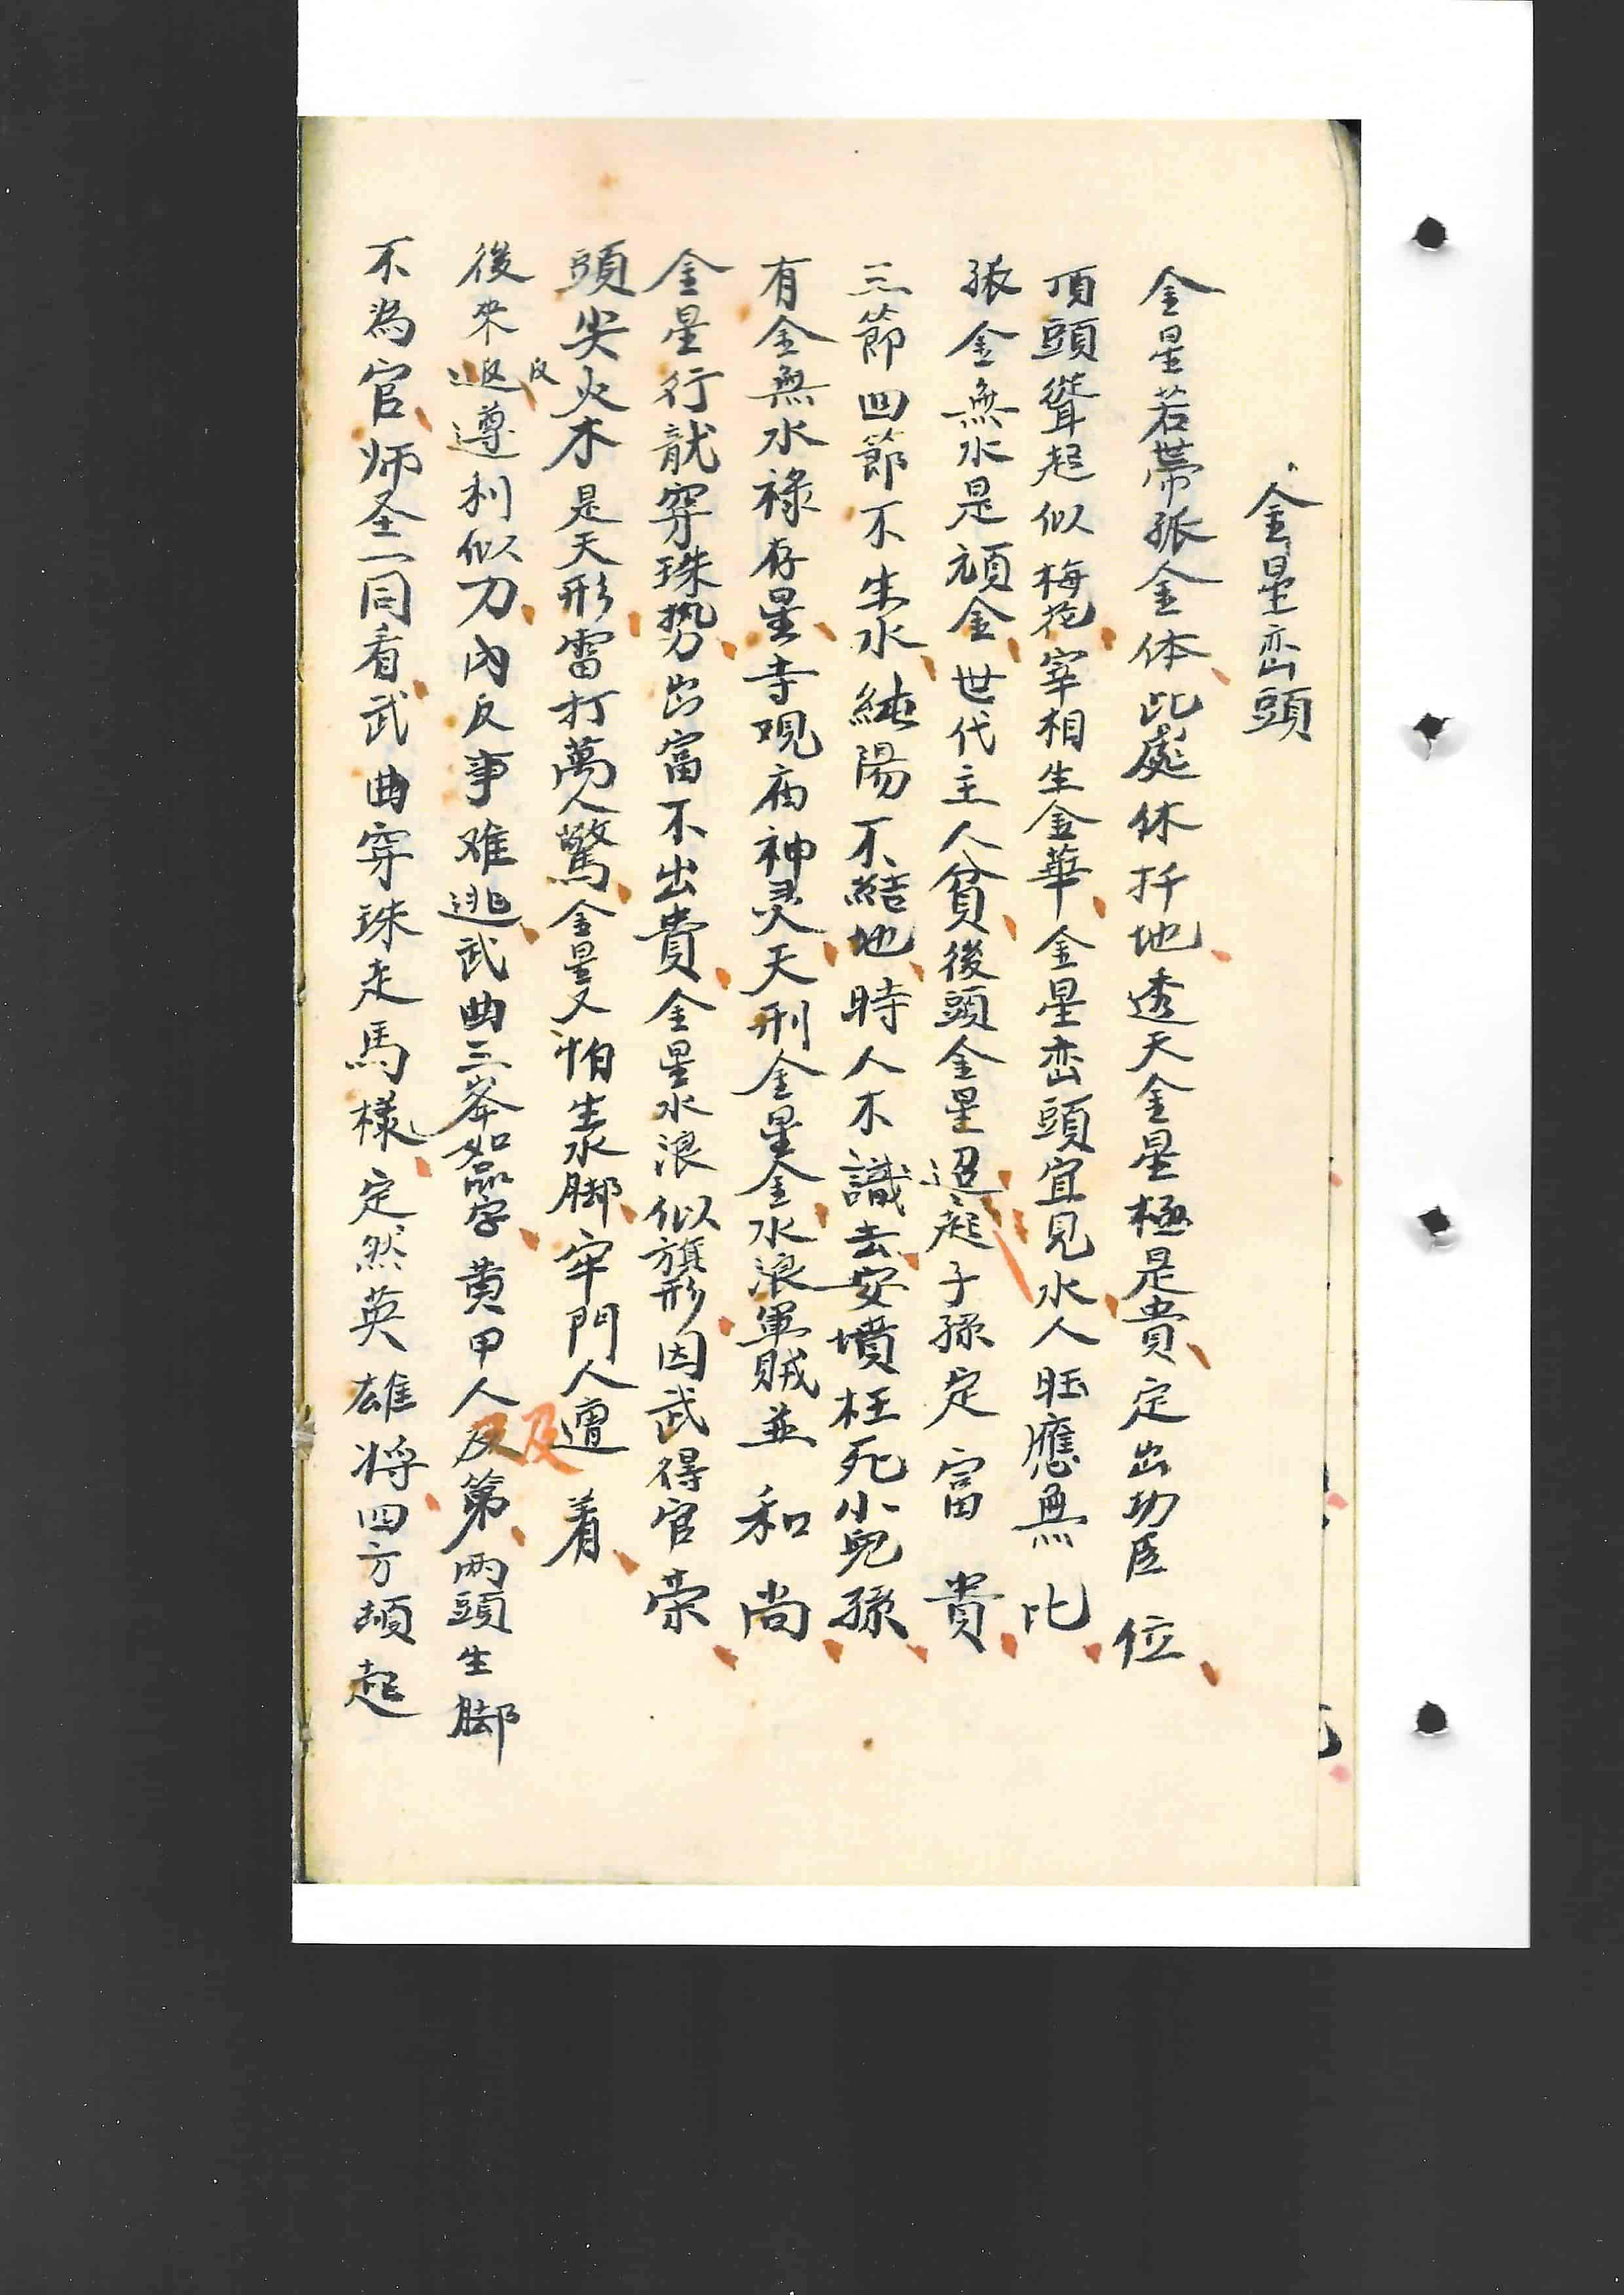 金星峦頭
金星若帶孤金体此處休扦地透天金星極是貴定出功臣位
頂頭聳起似梅花宰相生金華金星峦頭宜見水人旺應無比
孤金無水是頑金世代主人貧後頭金星迢起子孫定富貴
三節四節不生水純陽不結地時人不識去安墳枉死小兒孫
有金無水祿存星寺观庙神灵天刑金星金水浪軍賊並和尚
金星行龍穿珠势出富不出貴金星水浪似旗形因武得官荣
頭尖火木是天形雷打萬人驚金星又怕生水脚牢門人遭着
後來返反遵利似刀內反事难逃武曲三峯如品字黄甲人及第両頭生脚
不為官师圣一同看武曲穿珠走馬樣定然英雄将四方頓起